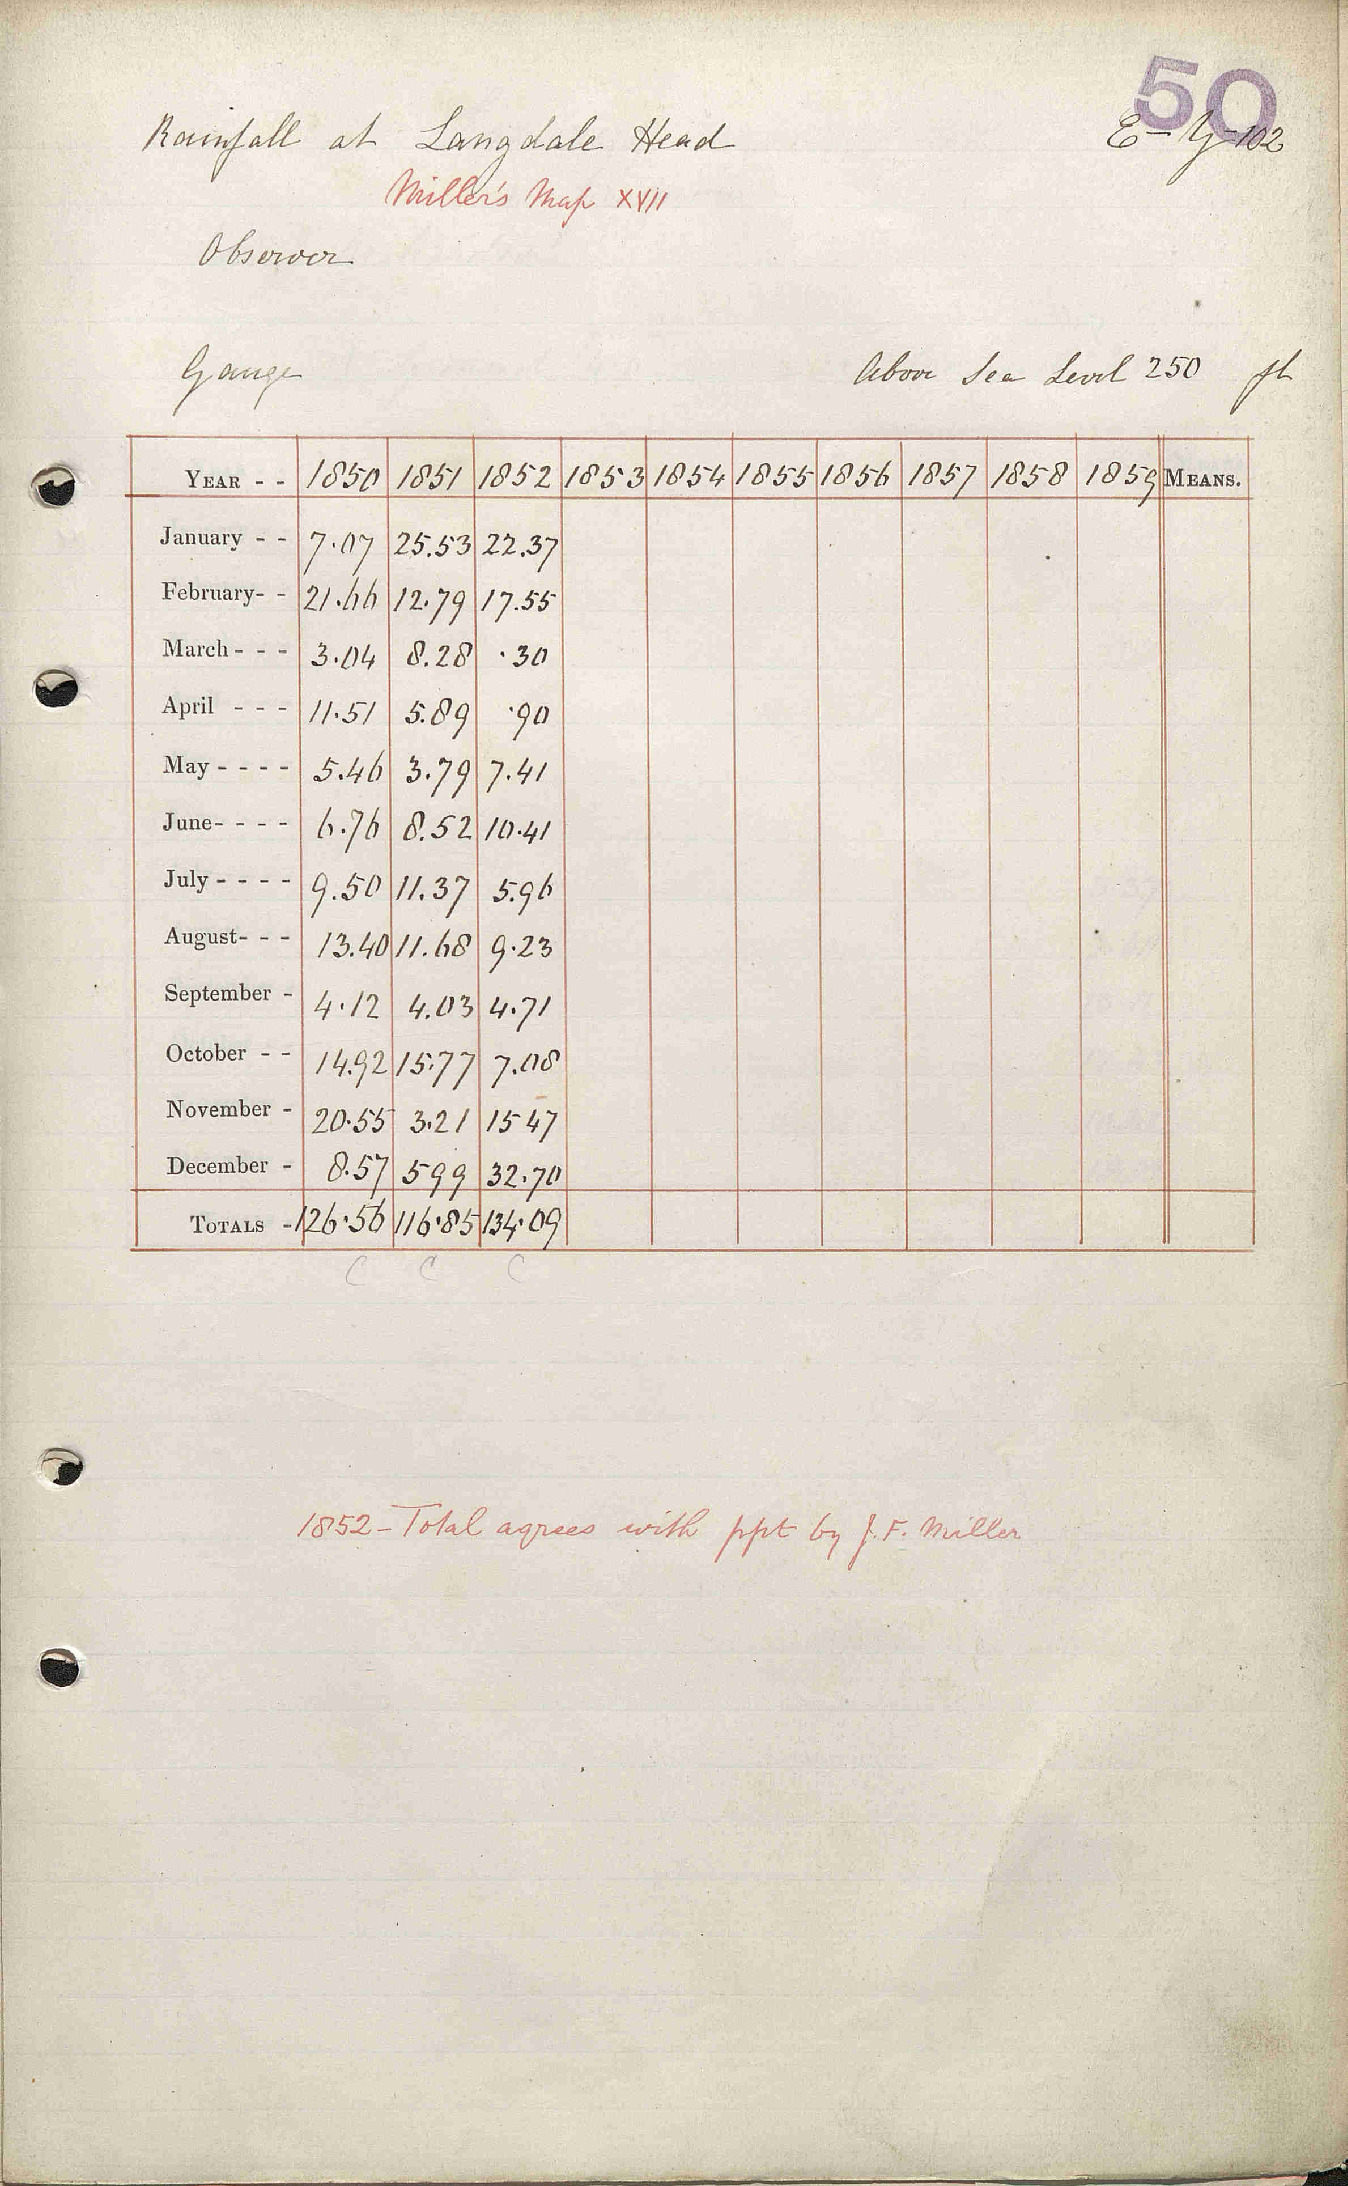 50
Rainfall at Langdale Head E - y - 102
Miller's Map XVII
Observer
Gauge Above Sea Level 250 ft
YEAR - - 1850 1851 1852 1853 1854 1855 1856 1857 1858 1859 MEANS.
January - - 7.07 25.53 22.37
February- - 21.66 12.79 17.55
March - - - 3.04 8.28 .30
April - - - 11.51 5.89 .90
May - - - - 5.46 3.79 7.41
June- - - - 6.76 8.52 10.41
July - - - - 9.50 11.37 5.96
August- - - 13.40 11.68 9.23
September - 4.12 4.03 4.71
October - - 14.92 15.77 7.08
November - 20.55 3.21 15 47
December - 8.57 5 99 32.70
TOTALS - 126.56 116.85 134.09
C C C
1852 - Total agrees with ppt by J.F. Miller